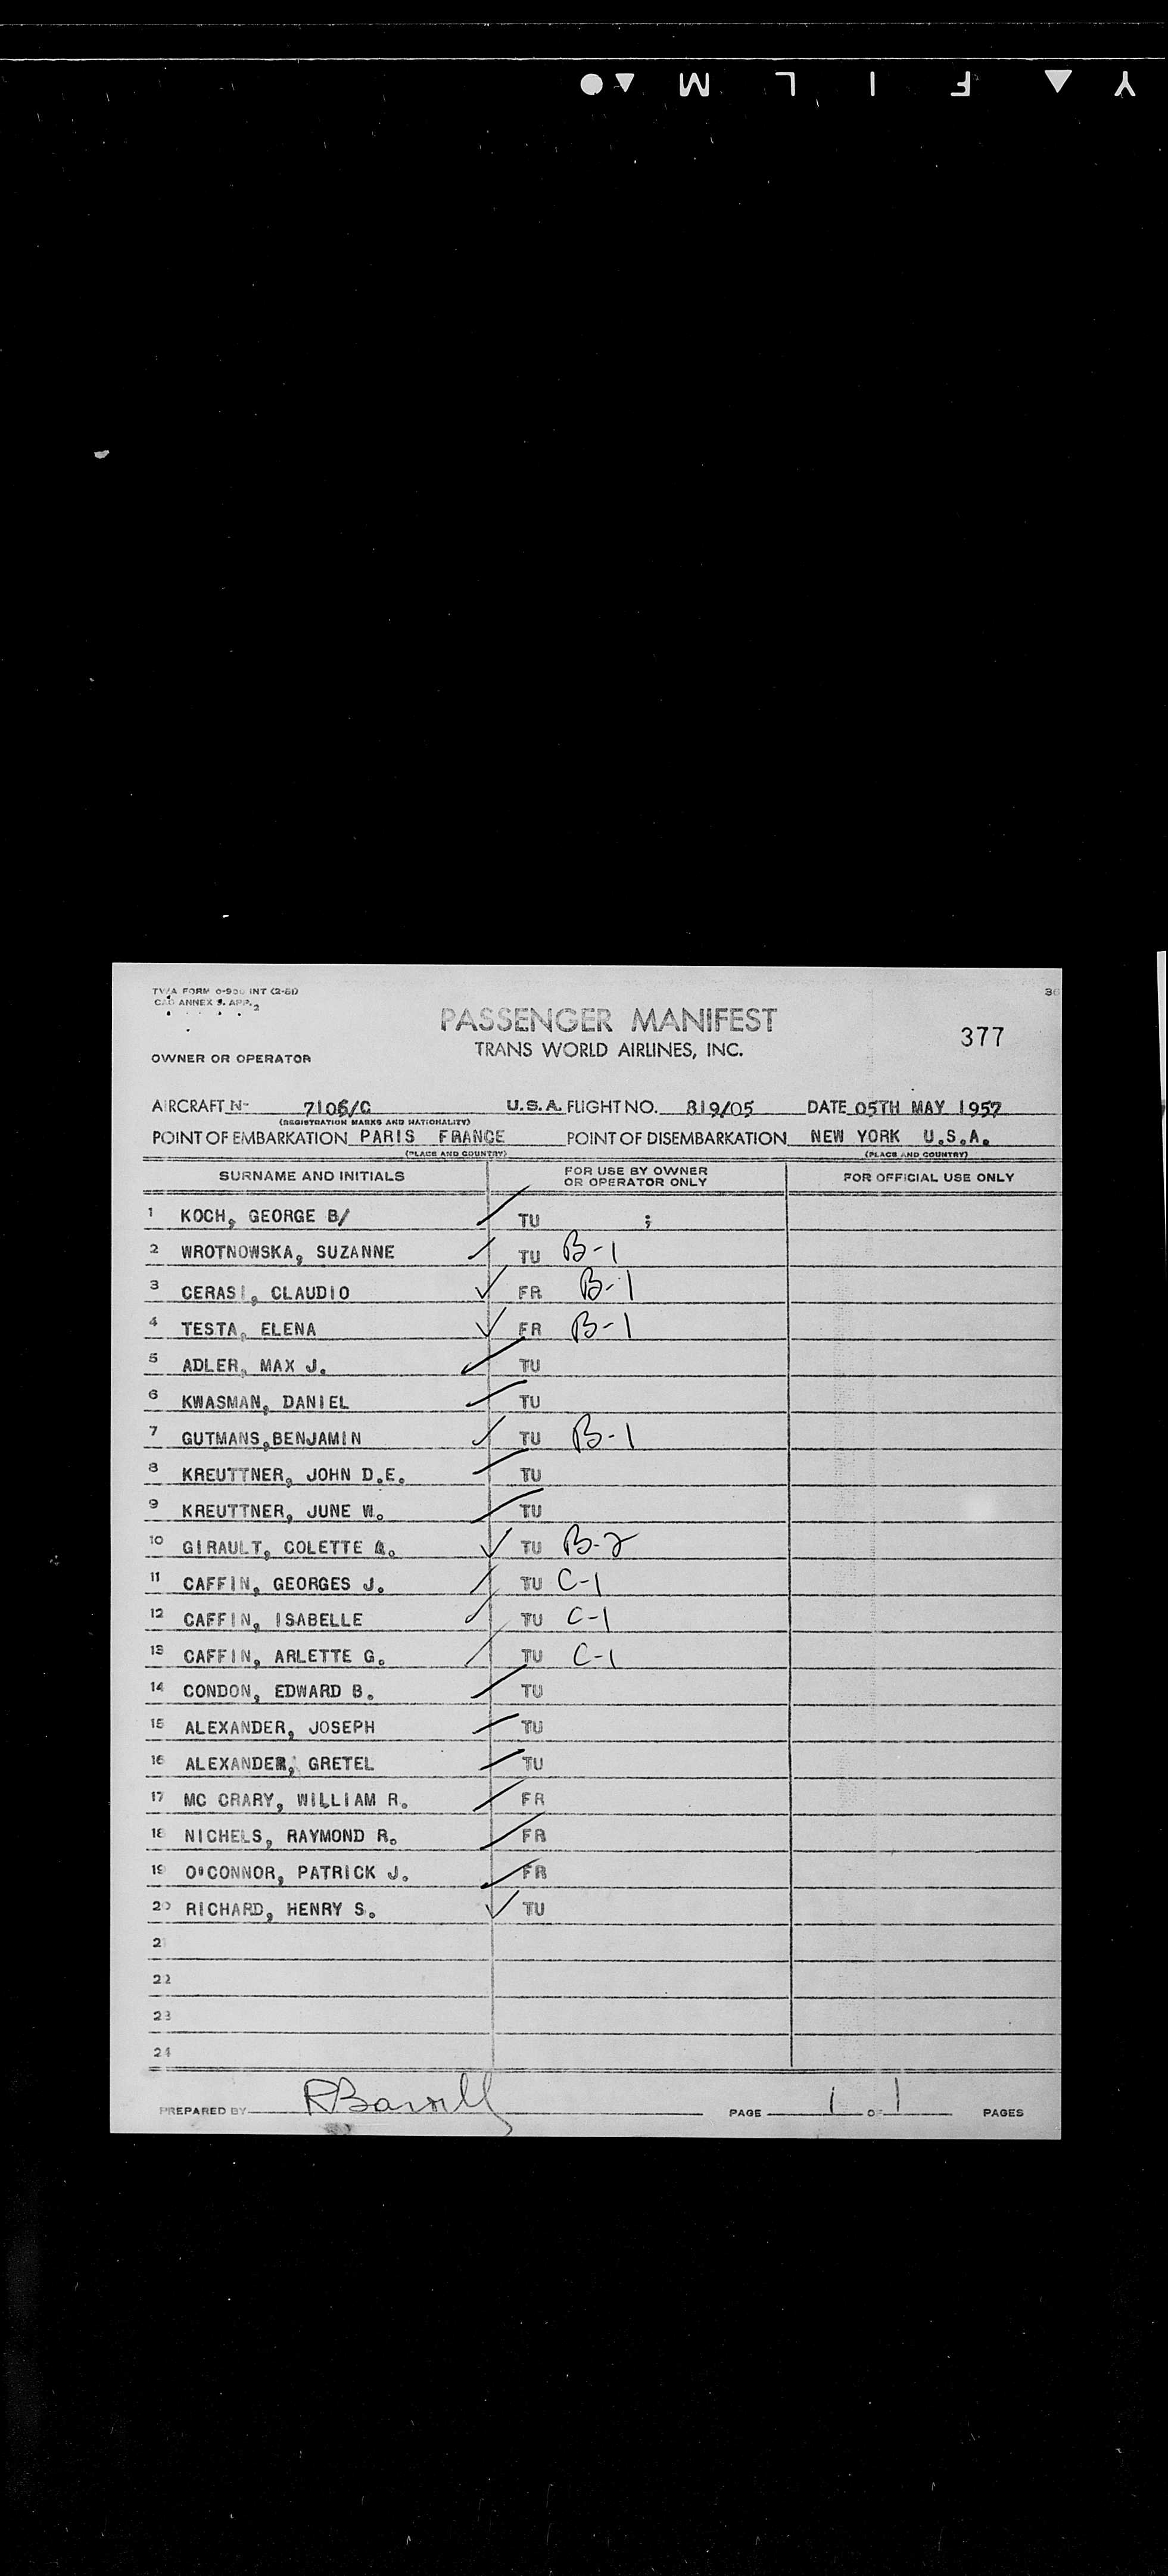 Y F I L M
TWA FORM O-900 INT (2-51)
CAO ANNEX 9. APP. 2
36
PASSENGER MANIFEST
377
TRANS WORLD AIRLINES, INC.
OWNER OR OPERATOR
AIRCRAFT N- 7106/C U.S.A. FLIGHT NO. 819/05 DATE 05TH MAY 1957
(REGISTRATION MARKS AND NATIONALITY)
POINT OF EMBARKATION PARIS FRANCE POINT OF DISEMBARKATION NEW YORK U.S.A.
(PLACE AND COUNTRY) (PLACE AND COUNTRY)
SURNAME AND INITIALS FOR USE BY OWNER OR OPERATOR ONLY FOR OFFICIAL USE ONLY
1 KOCH, GEORGE B/ TU ;
2 WROTNOWSKA, SUZANNE TU B-1
3 CERASI, CLAUDIO FR B-1
4 TESTA, ELENA FR B-1
5 ADLER, MAX J. TU
6 KWASMAN, DANIEL TU
7 GUTMANS,BENJAMIN TU B-1
8 KREUTTNER, JOHN D.E. TU
9 KREUTTNER, JUNE W. TU
10 GIRAULT, COLETTE TU B-2
11 CAFFIN, GEORGES J. TU C-1
12 CAFFIN, ISABELLE TU C-1
13 CAFFIN, ARLETTE G. TU C-1
14 CONDON, EDWARD B. TU
15 ALEXANDER, JOSEPH TU
16 ALEXANDER, GRETEL TU
17 MC CRARY, WILLIAM R. FR
18 NICHELS, RAYMOND R. FR
19 O'CONNOR, PATRICK J. FR
20 RICHARD, HENRY S. TU
21
22
23
24
PREPARED BY PAGE 1 OF 1 PAGES